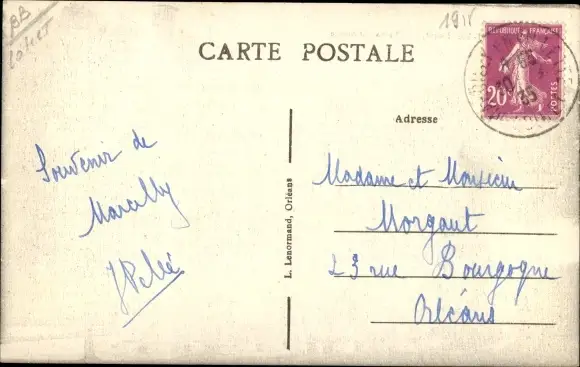 BB
Loiret
CARTE POSTALE
REPUBLIQUE FRANÇAISE
20c
POSTES
Adresse
Souvenir de
Marcilly
L. Lenormand, Orléans
Madame et Monsieur
Morgaut
23 rue Bourgogne
Orléans